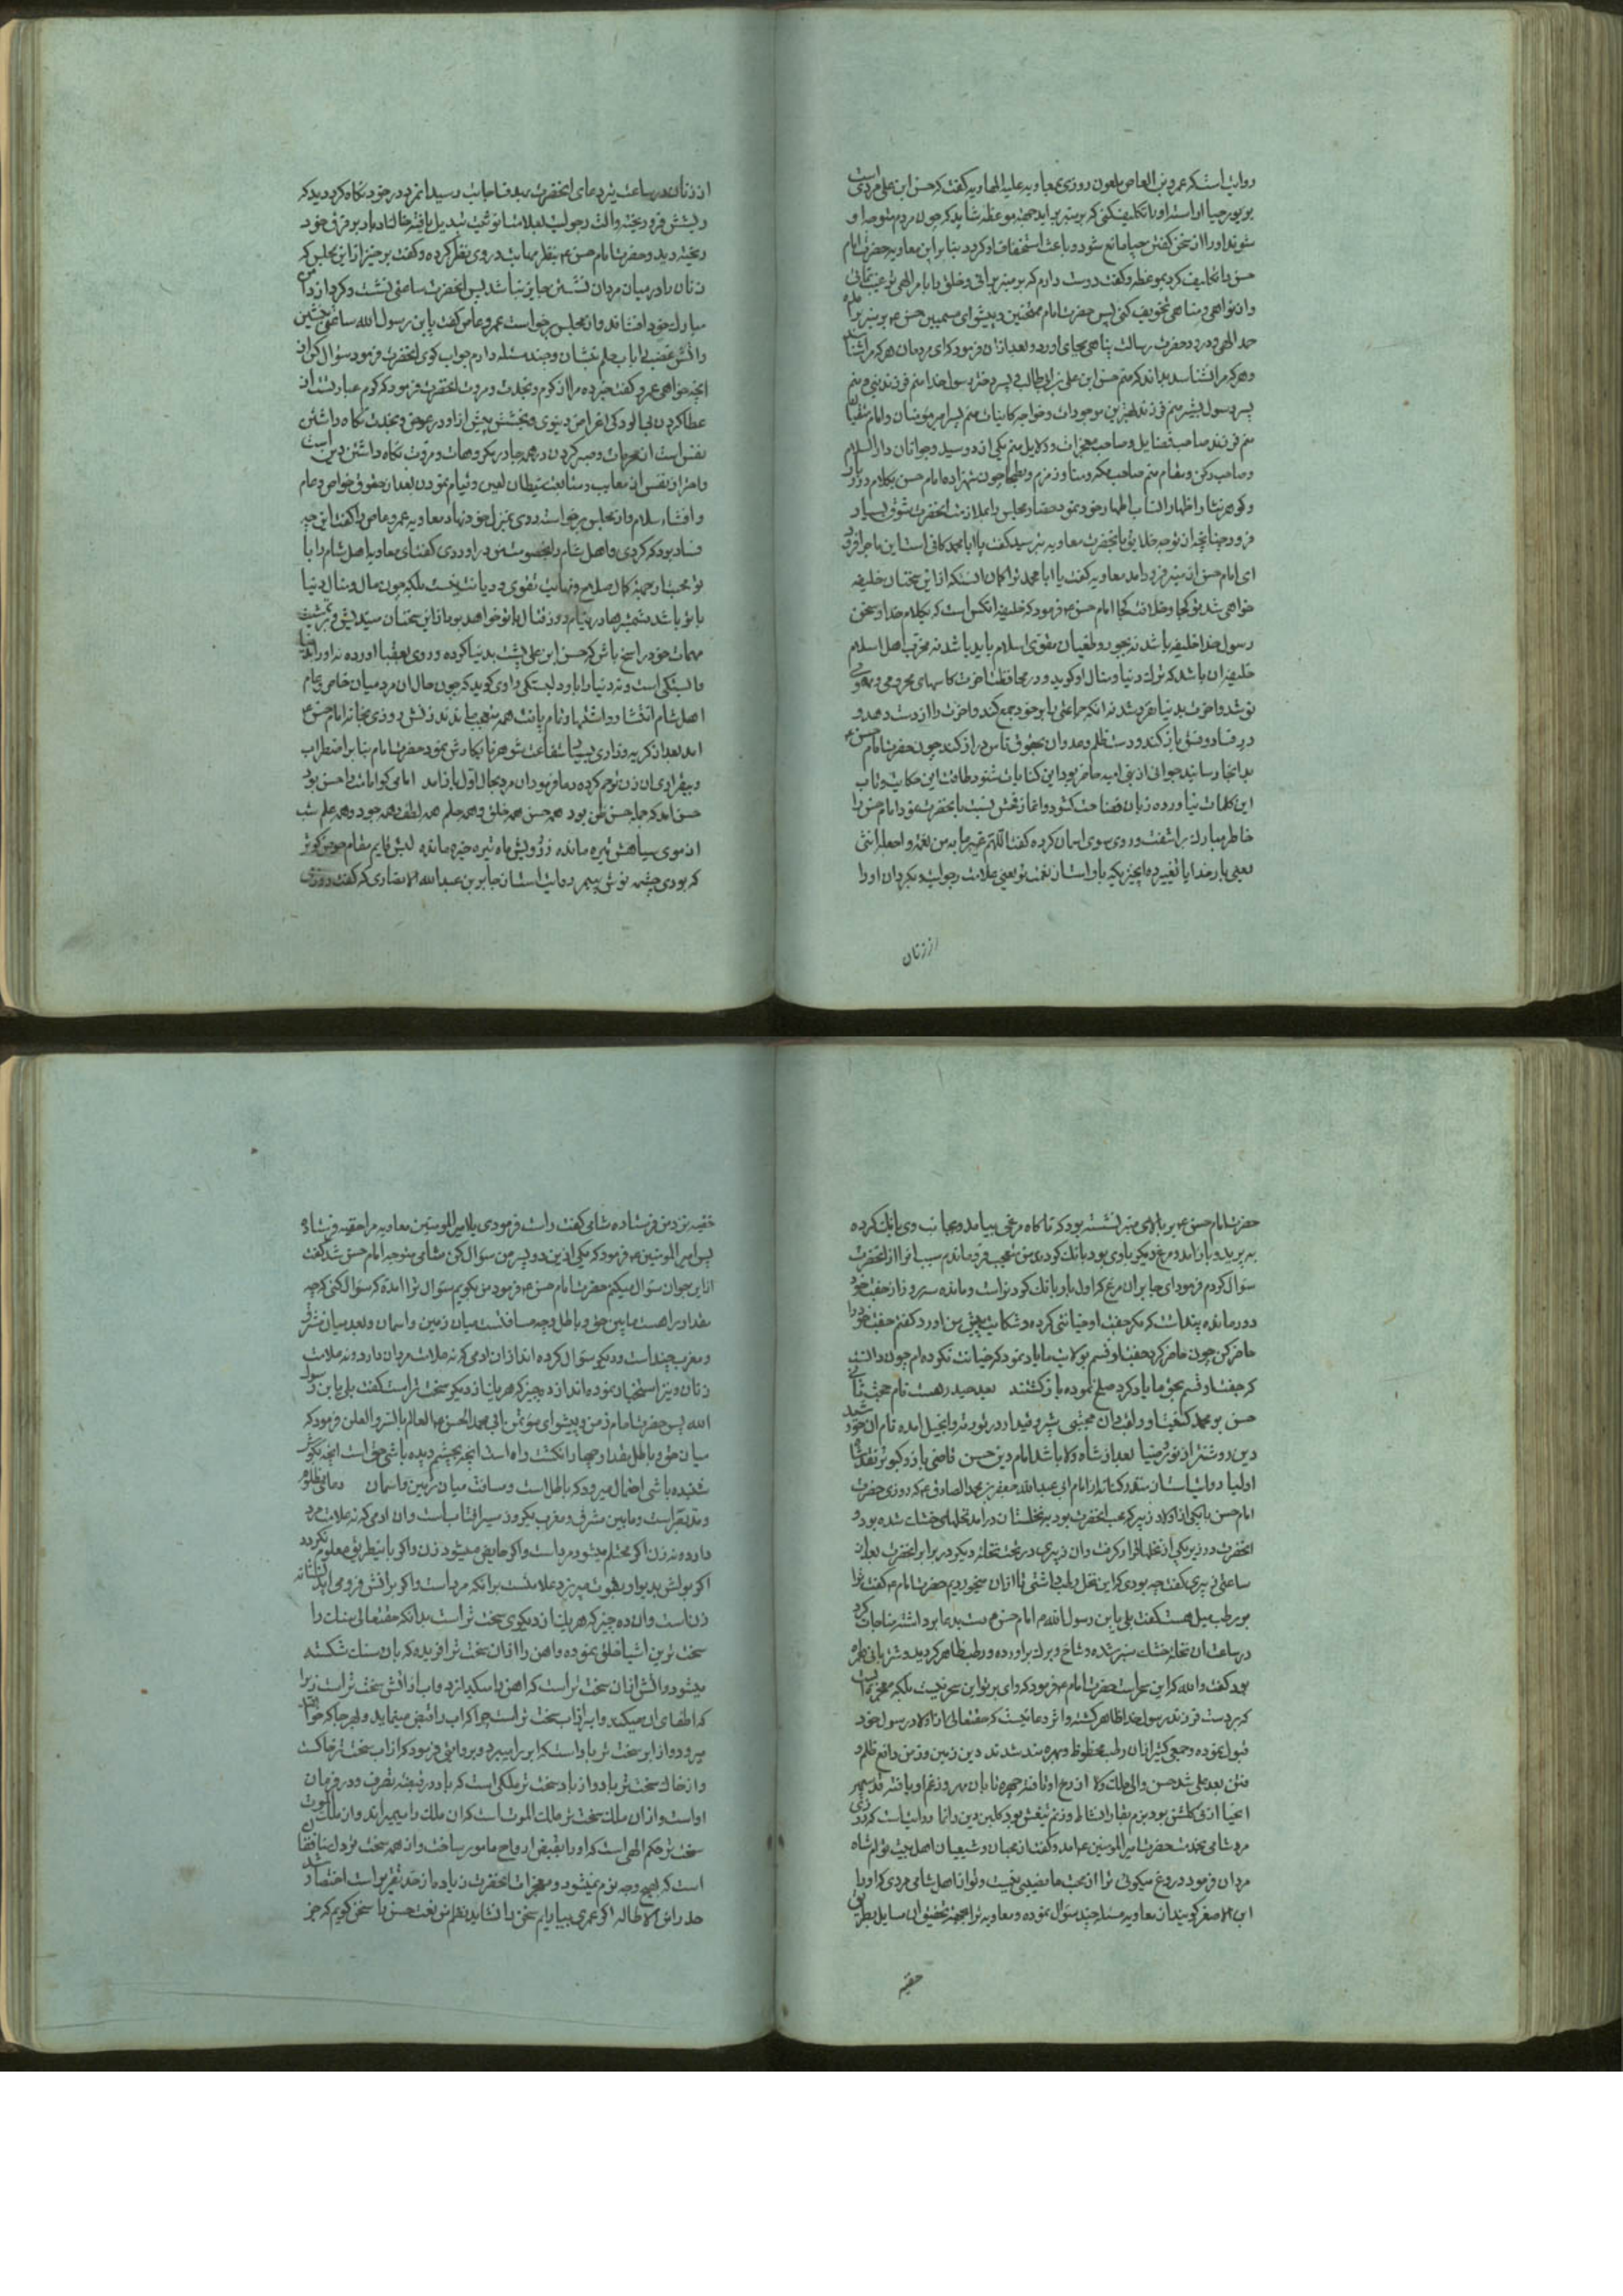 روایت است که عمرو بن العاص ملعون روزی بمعاویه علیه الهاویه گفت که حسن ابن علی مردی است
بزیور حیا اراسته او را تکلیف کنی که بر منبر براید جهة موعظه شاید که چون مردم متوجه او
شوند او را از سخن گفتن حیا مانع شود و باعث استخفاف او کردد بنا براین معاویه حضرت امام
حسن را تکلیف کرد بموعظه و گفت دوست دارم که بر منبر برائی و خلق را بامر الهی ترغیب نمائی
و از نواهی و مناهی تخویف کنی پس حضرت امام ممتحنین و پیشوای مسمیین حسن ع بر منبر برامد
حمد الهی و درود حضرت رسالت پناهی بجای اورد و بعد از ان فرمود که ای مردمان هر که مرا شناسد
و هر که مرا نشناسد بداند که منم حسن ابن علی بن ابی طالب و پسر دختر رسول خدا منم فرزند نبی و منم
پسر رسول بشیر منم فرزند بهترین موجودات و خواجه کاینات منم پسر امیر مؤمنان و امام متقیان
منم فرزند صاحب فضایل و صاحب معجزات و دلایل منم یکی از دو سید جوانان دار السلام
و صاحب رکن و مقام منم صاحب مکه و منا و زمزم و بطحا چون شهزاده امام حسن بکلام درر بار
و کوهر نثار اظهار انتساب اطهار خود نمود حضار مجلس را بملازمت انحضرت شوق بسیار
فزود چنانچه از توجه خلایق بانحضرت معاویه بترسید گفت یا ابا محمد کافی است این ماجرا فرود
ای امام حسن از منبر فرود امد معاویه گفت یا ابا محمد ترا کمان انستکه از این سخنان خلیفه
خواهی شد تو کجا و خلافت کجا امام حسن ع فرمود که خلیفه انکس است که بکلام خدا و سخن
رسول خدا خلیفه باشد نه بجور و طغیان مقوی اسلام باید باشد نه مخرب اهل اسلام
خلیفه ان باشد که ترک دنیا و منال او کوید و در محافظت اخرت کاسهای محرومی و بینوائی
نوشد و اخرت بدنیا نفروشد نه انکه جماعتی را بر خود جمع کند و اخرت را از دست دهد و
در فساد و فسق باز کند و دست ظلم و عدوان بحقوق ناس دراز کند چون حضرت امام حسن ع
بدانجا رسانید جوانی از بنی امیه حاضر بود این کنایات شنود طاقت این حکایت و تاب
این کلمات نیاورده زبان فضاحت کشود و اغاز فحش نسبت بانحضرت نمود امام حسن را
خاطر مبارک براشفت و روی سوی اسمان کرده گفت اللهم غیر ما به من نعمة و اجعله انثی
یعنی بار خدایا تغییر ده انچیزیکه با و است از نعمت تو یعنی علامت رجولیت و بکردان او را
از زنان
از زنان در ساعت تیر دعای انحضرت بهدف اجابت رسید انمرد در خود نکاه کرد دید که
ریشش فرو ریخته و الت رجولیت بعلامت انوثیت تبدیل یافته خاک نامرادی بر فرق خود
ریخته دید و حضرت امام حسن ع بنظر مهابت در وی نظر کرده و گفت برخیز از این مجلس که
زنان را در میان مردان نشستن جایز نباشد پس انحضرت ساعتی نشست و کرد از دامن
مبارک خود افشاند و از مجلس برخواست عمرو عاص گفت یا بن رسول الله ساعتی بنشین
و اتش غضب را باب حلم بنشان و چند مسئله دارم جواب کوی انحضرت فرمود سؤال کن از
انچه خواهی عمرو گفت خبر ده مرا از کرم و نجدت و مروت انحضرت فرمود که کرم عبارتست از
عطا کردن بی الودکی اغراض دنیوی و بخشش پیش از او در عوض و نجدت نکاه داشتن
نفس است از محرمات و صبر کردن در همه جا در مکروهات و مروت نکاه داشتن دین است
و احراز نفس از معایب و متابعت شیطان لعین و قیام نمودن بعد از حقوق خواص و عام
و افشاء سلام و از مجلس برخواست روی بمنزل خود نهاد معاویه عمرو عاص را گفت این چه
فساد بود که کردی و اهل شام را بخصومت من دراوردی گفت ای معاویه اهل شام را با
تو محبت از جهة کمال صلاح و نهایت تقوی و دیانت نیست بلکه چون مال و منال دنیا
با تو باشد شمشیرها در نیام و زر قتال با تو خواهد بود از این سخنان میندیش و بتمشیت
مهمات خود راسخ باش که حسن ابن علی پشت بدنیا کرده و روی بعقبا اورده نه او را بدنیا
وابستکی است و نه دنیا را باو دلبستکی راوی کوید که چون حال ان مرد میان خاص و عام
اهل شام انتشار و اشتهار تمام یافت همه متعجب بماندند زنش روزی بخانه امام حسن ع
امد بعد از کریه و زاری بسیار شفاعت شوهر نابکارش نمود حضرت امام بنا بر اضطراب
و بیقراری ان زن ترحم کرده دعا فرمود ان مرد بحال اول باز امد امامی کو امامت را حسن بود
حسن امد که جمله حسن ظن بود همه حسن همه خلق و همه حلم همه لطف و همه جود و همه علم شب
از موی سیاهش تیره مانده ز رویش ماه تیره خیره مانده لبش قایم مقام حوض کوثر
که بودی چشمه نوش پیمبر روایت است از جابر بن عبدالله الانصاری که گفت روزی
حضرت امام حسن ع بر بالای منبر نشسته بود که ناکاه مرغی بیامد و بجانب وی بانک کرده
بپرید و باز امد و مرغ دیکر با وی بود بانک کردند من متعجب فرو ماندم سبب انرا از انحضرت
سؤال کردم فرمود ای جابر ان مرغ که اول بار بانک کرد نر است و مانده سه روز از جفت خود
دور مانده پنداشت که مکر جفت او خیانتی کرده و شکایت پیش من اورد گفتم جفت خود را
حاضر کن چون حاضر کرد جفت او قسم بولایت ما یاد نمود که خیانت نکرده ام چون دانست
که جفتش قسم بحق ما یاد کرد صلح نموده باز کشتند بعد حیدر هست نام حجت ثانی
حسن بو محمد کنیت او را لقب دان مجتبی شبر و فیدار در توریة و انجیل امده نام ان خورشید
دین روشنتر از نور ضیا بعد از شاه ولا باشد امام دین حسن قاضی بازو کبوتر نقد شاه
اولیا روایت است از منقدر کناسه از امام ابی عبدالله جعفر بن محمد الصادق ع که روزی حضرت
امام حسن با یکی از اولاد زبیر که محب انحضرت بود به نخلستان درامد نخلهای خشک شده بود و
انحضرت در زیر یکی از نخلها قرار کرفت و ان زبیری در تحت نخله دیکر در برابر انحضرت بعد از
ساعتی زبیری گفت چه بودی که این نخل رطب داشتی تا از ان میخوردیم حضرت امام ع گفت ترا
بر رطب میل هست گفت بلی یا بن رسول الله م امام حسن ع دست بدعا برداشته مناجات کرد
در ساعت ان نخله خشک سبز شده و شاخ و برک براورده و رطب ظاهر کردید و شتربانی همراه
بود گفت والله که این سحر است حضرت امام ع فرمود که وای بر تو این سحر نیست بلکه معجزه است
که بر دست فرزند رسول خدا ظاهر کشته و اثر دعائیست که حقتعالی از اولاد رسول خود
قبول نموده و جمعی کثیر از ان رطب محظوظ و بهره مند شدند دین ز بین و زمن دافع ظلم و
فتن بعد علی شد حسن والی ملک ولا از رخ او تافته چهره تابان مهر وز غم او یافته قد سپهر
انحنا از پی کلشن بود بزم بقا را نشاط وز نم تیغش بود کلبن دین را نما روایت است که روزی
مرد شامی بخدمت حضرت امیر المومنین ع امد و گفت از محبان و شیعیان اهل بیت توام شاه
مردان فرمود دروغ میکوئی ترا از محبت ما نصیبی نیست و تو از اهل شامی مردی که او را
ابن الاصفر کویند از معاویه مسئله چند سؤال نموده و معاویه ترا بجهة تحقیق ان مسایل بطریق
خفیه
خفیه نزد من فرستاده شامی گفت راست فرمودی یا امیر المومنین معاویه مرا خفیه فرستاده
پس امیر المومنین ع فرمود که یکی از این دو پسر من سؤال کن شامی متوجه امام حسن شد گفت
از این جوان سؤال میکنم حضرت امام حسن ع فرمود من بکویم سؤال ترا امدۀ که سؤال کنی که چه
مقدار راهست مابین حق و باطل و چه مسافتست میان زمین و اسمان و بعد میان مشرق
و مغرب چند است و دیکر سؤال کرده اند از ان ادمی که نه علامت مردان دارد و نه علامت
زنان و نیز استخبار نموده اند از ده چیز که هر یک از دیکری سخت تر است گفت بلی یا بن رسول
الله پس حضرت امام زمن و پیشوای مؤتمن ابی محمد الحسن ع العالم بالسر و العلن فرمود که
میان حق و باطل مقدار چهار انکشت راه است انچه بچشم دیده باشی حق است انچه بکوش
شنیده باشی احتمال میرود که باطل است و مسافت میان زمین و اسمان دعای مظلوم
و مد بصر است و مابین مشرق و مغرب یکروز سیر افتاب است و ان ادمی که نه علامت مرد
دارد و نه زن اکر محتلم میشود مرد است و اکر حایض میشود زن و اکر باینطریق معلوم نکردد
اکر بولش بدیوار بقوت میریزد علامتست برانکه مرد است و اکر بر اتش فرو می اید نشانه
زنست و ان ده چیز که هر یک از دیکری سخت تر است بدانکه حقتعالی سنک را
سخت ترین اشیا خلق نموده و اهن را از ان سخت تر افریده که بان سنک شکسته
میشود و اتش از ان سخت تر است که اهن را میکدازد و اب از اتش سخت تر است زیرا
که اطفای ان میکند و ابر از اب سخت تر است چرا که اب را فیض مینماید و بهر جا که خواهد
میرود و از ابر سخت تر باد است که ابر را میبرد و بروایتی فرمود که از اب سخت تر خاکست
و از خاک سخت تر باد و از باد سخت تر ملکی است که باد در قبضه تصرف و در فرمان
اوست و از ان ملک سخت تر ملک الموت است که ان ملک را میمیراند و از ملک الموت
سخت تر حکم الهی است که او را بقبض ارواح مامور ساخت و از همه سخت تر دل منافقان
است که بهیچ وجه نرم نمیشود و معجزات انحضرت زیاده از حد تقریر است اختصار شد
حذرا من الاطاله اکر عمری بیارایم سخن را نشاید نظم من نعت حسن را سخن کویم که جز